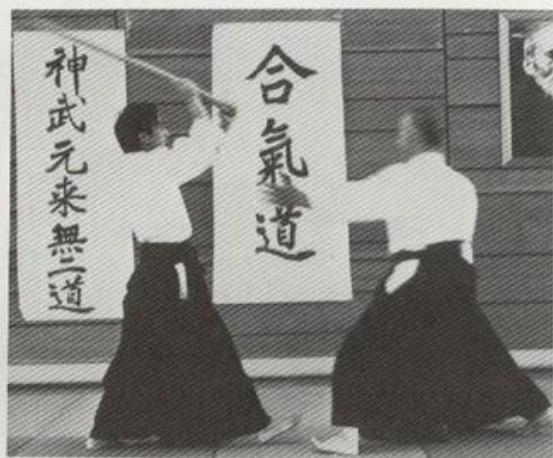 神武元来無二道
合氣道